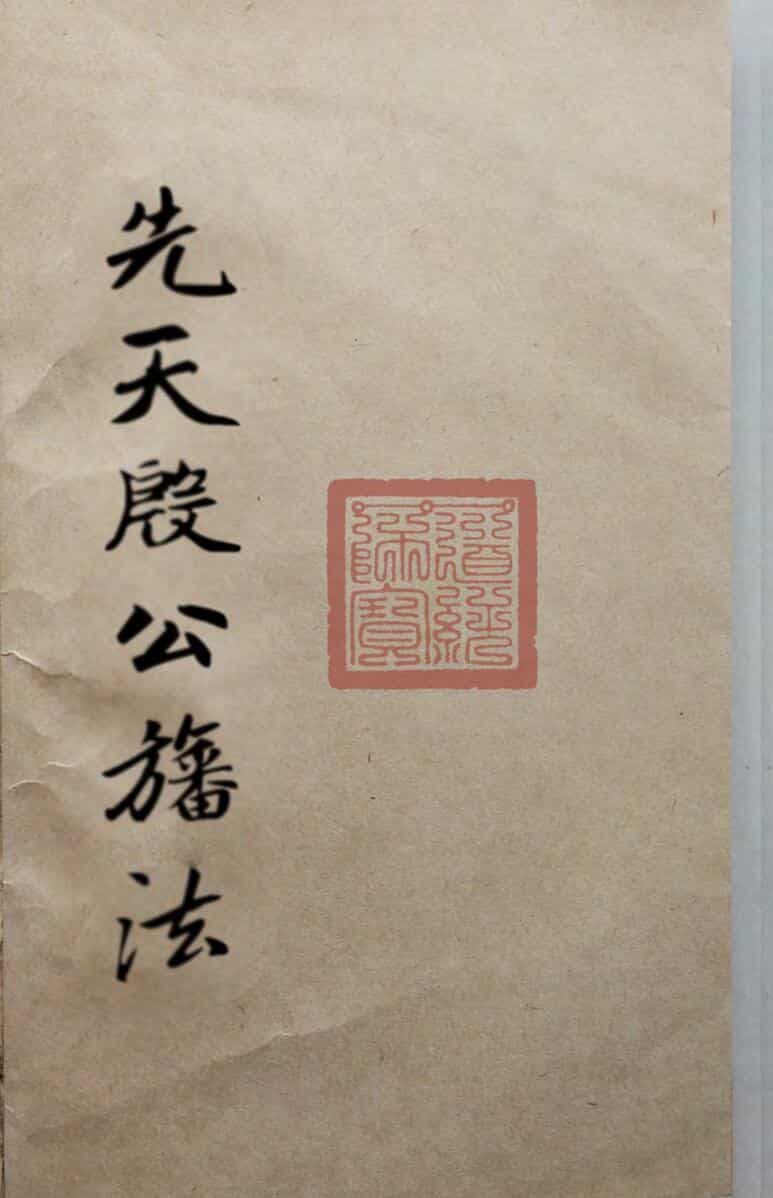 先天殷公旛法
道經師寶